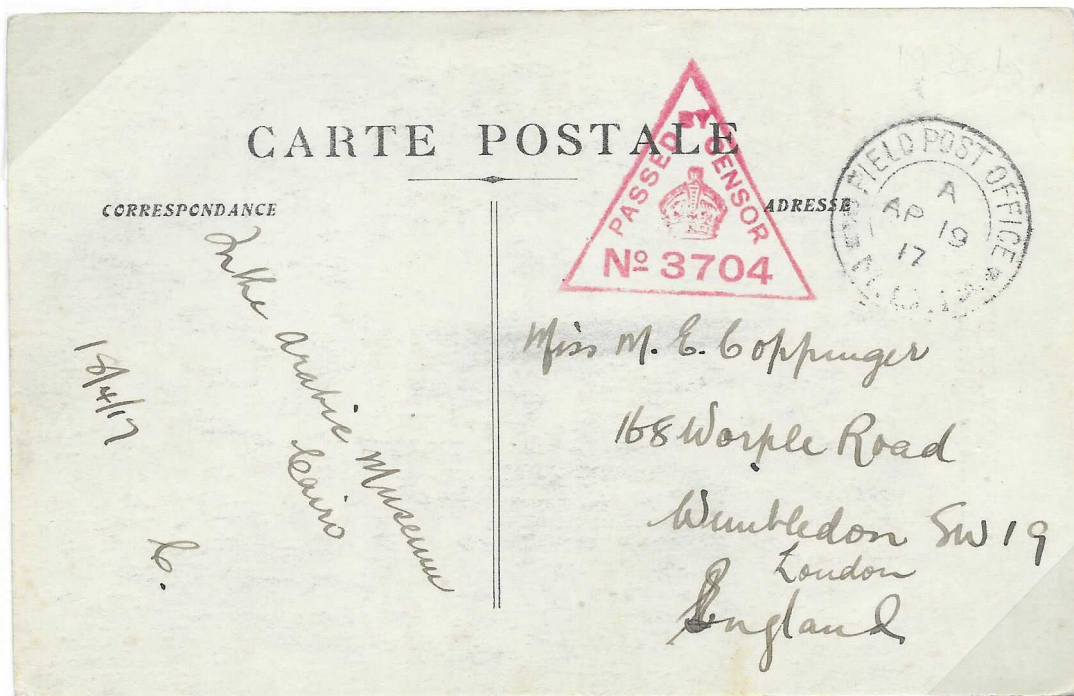 CARTE POSTALE
CORRESPONDANCE
ADRESSE
PASSED BY CENSOR
Nº 3704
FIELD POST OFFICE
A
AP 19
17
In the Arabic Museum
Cairo
18/4/17
C.
Miss M. E. Coppinger
168 Worple Road
Wimbledon SW 19
London
England